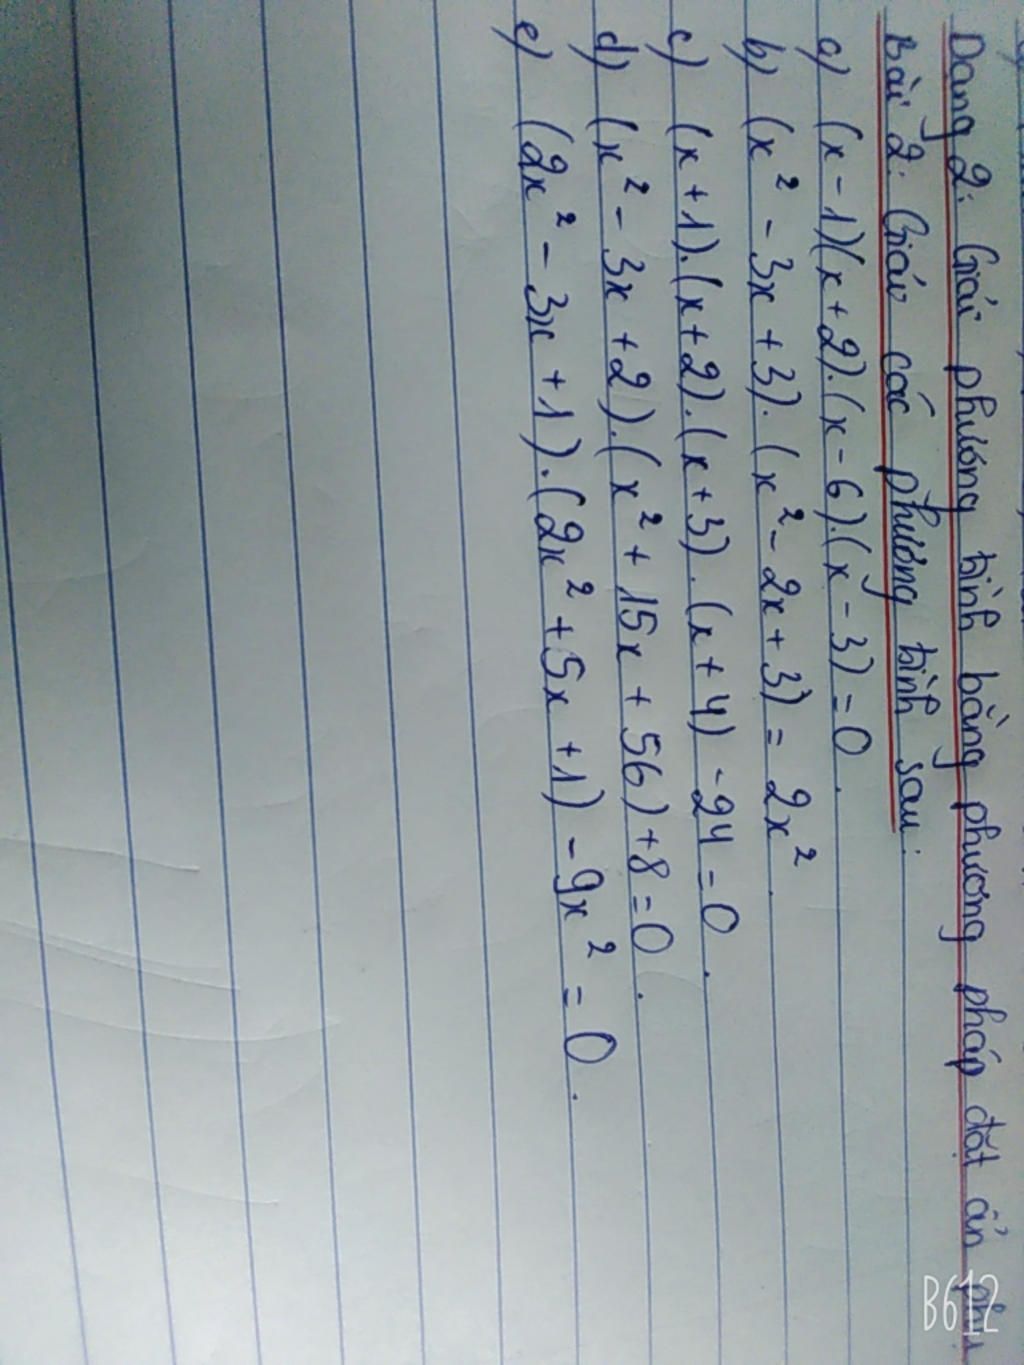 Dạng 2: Giải phương trình bằng phương pháp đặt ẩn phụ
Bài 2: Giải các phương trình sau:
a) (x-1)(x+2).(x-6).(x-3)=0.
b) (x² - 3x +3). (x² - 2x+3) = 2x².
c) (x+1).(x+2).(x+3).(x+4) - 24 = 0.
d) (x² - 3x +2).(x² + 15x + 56) +8 = 0.
e) (2x² - 3x +1).(2x² +5x +1) - 9x² = 0.
B612